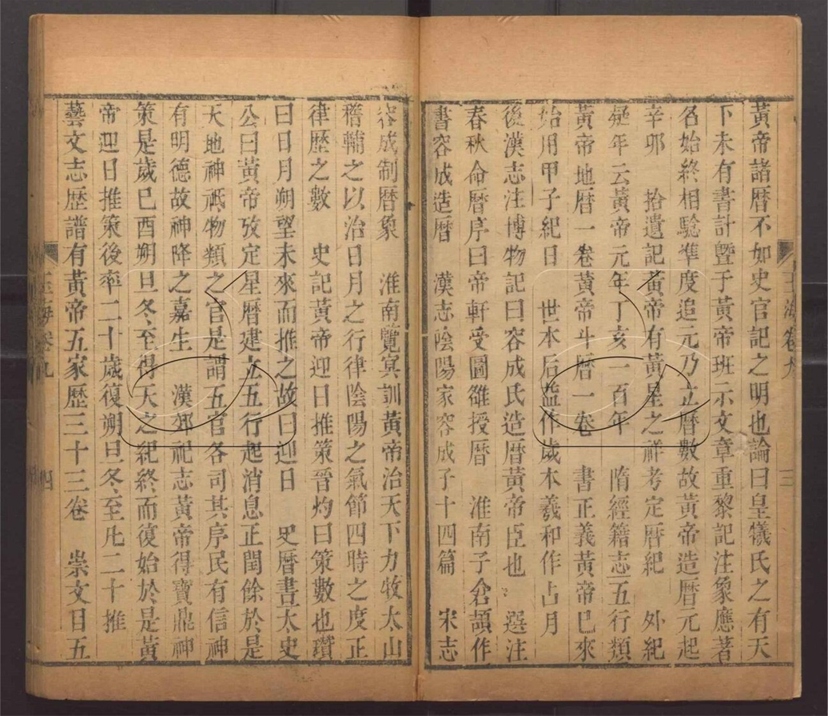 黃帝諸暦不如史官記之明也論曰皇犧氏之有天
下未有書計曁于黃帝班示文章重黎記注象應著
名始終相驗準度追元乃立暦數故黃帝造暦元起
辛卯　拾遺記黃帝有黃星之祥考定暦紀　外紀
疑年云黃帝元年丁亥一百年　隋經籍志五行類
黃帝地暦一卷黃帝斗暦一卷　書正義黃帝已來
始用甲子紀日　世本后益作歲本羲和作占月
後漢志注博物記曰容成氏造暦黃帝臣也　選注
春秋命暦序曰帝軒受圖雒授暦　淮南子倉頡作
書容成造暦　漢志陰陽家容成子十四篇　宋志
玉海卷九
三
容成制暦象　淮南覽冥訓黃帝治天下力牧太山
稽輔之以治日月之行律陰陽之氣節四時之度正
律歴之數　史記黃帝迎日推策晉灼曰策數也瓚
曰日月朔望未來而推之故曰迎日　史暦書太史
公曰黃帝攷定星暦建立五行起消息正閏餘於是
天地神祇物類之官是謂五官各司其序民有信神
有明德故神降之嘉生　漢郊祀志黃帝得寶鼎神
策是歲己酉朔旦冬至得天之紀終而復始於是黃
帝迎日推策後率二十歲復朔旦冬至凡二十推
藝文志歴譜有黃帝五家歴三十三卷　崇文目五
玉海卷九
四